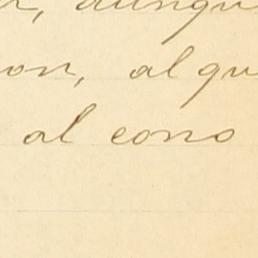 , aunqu
on, al qu
al cono